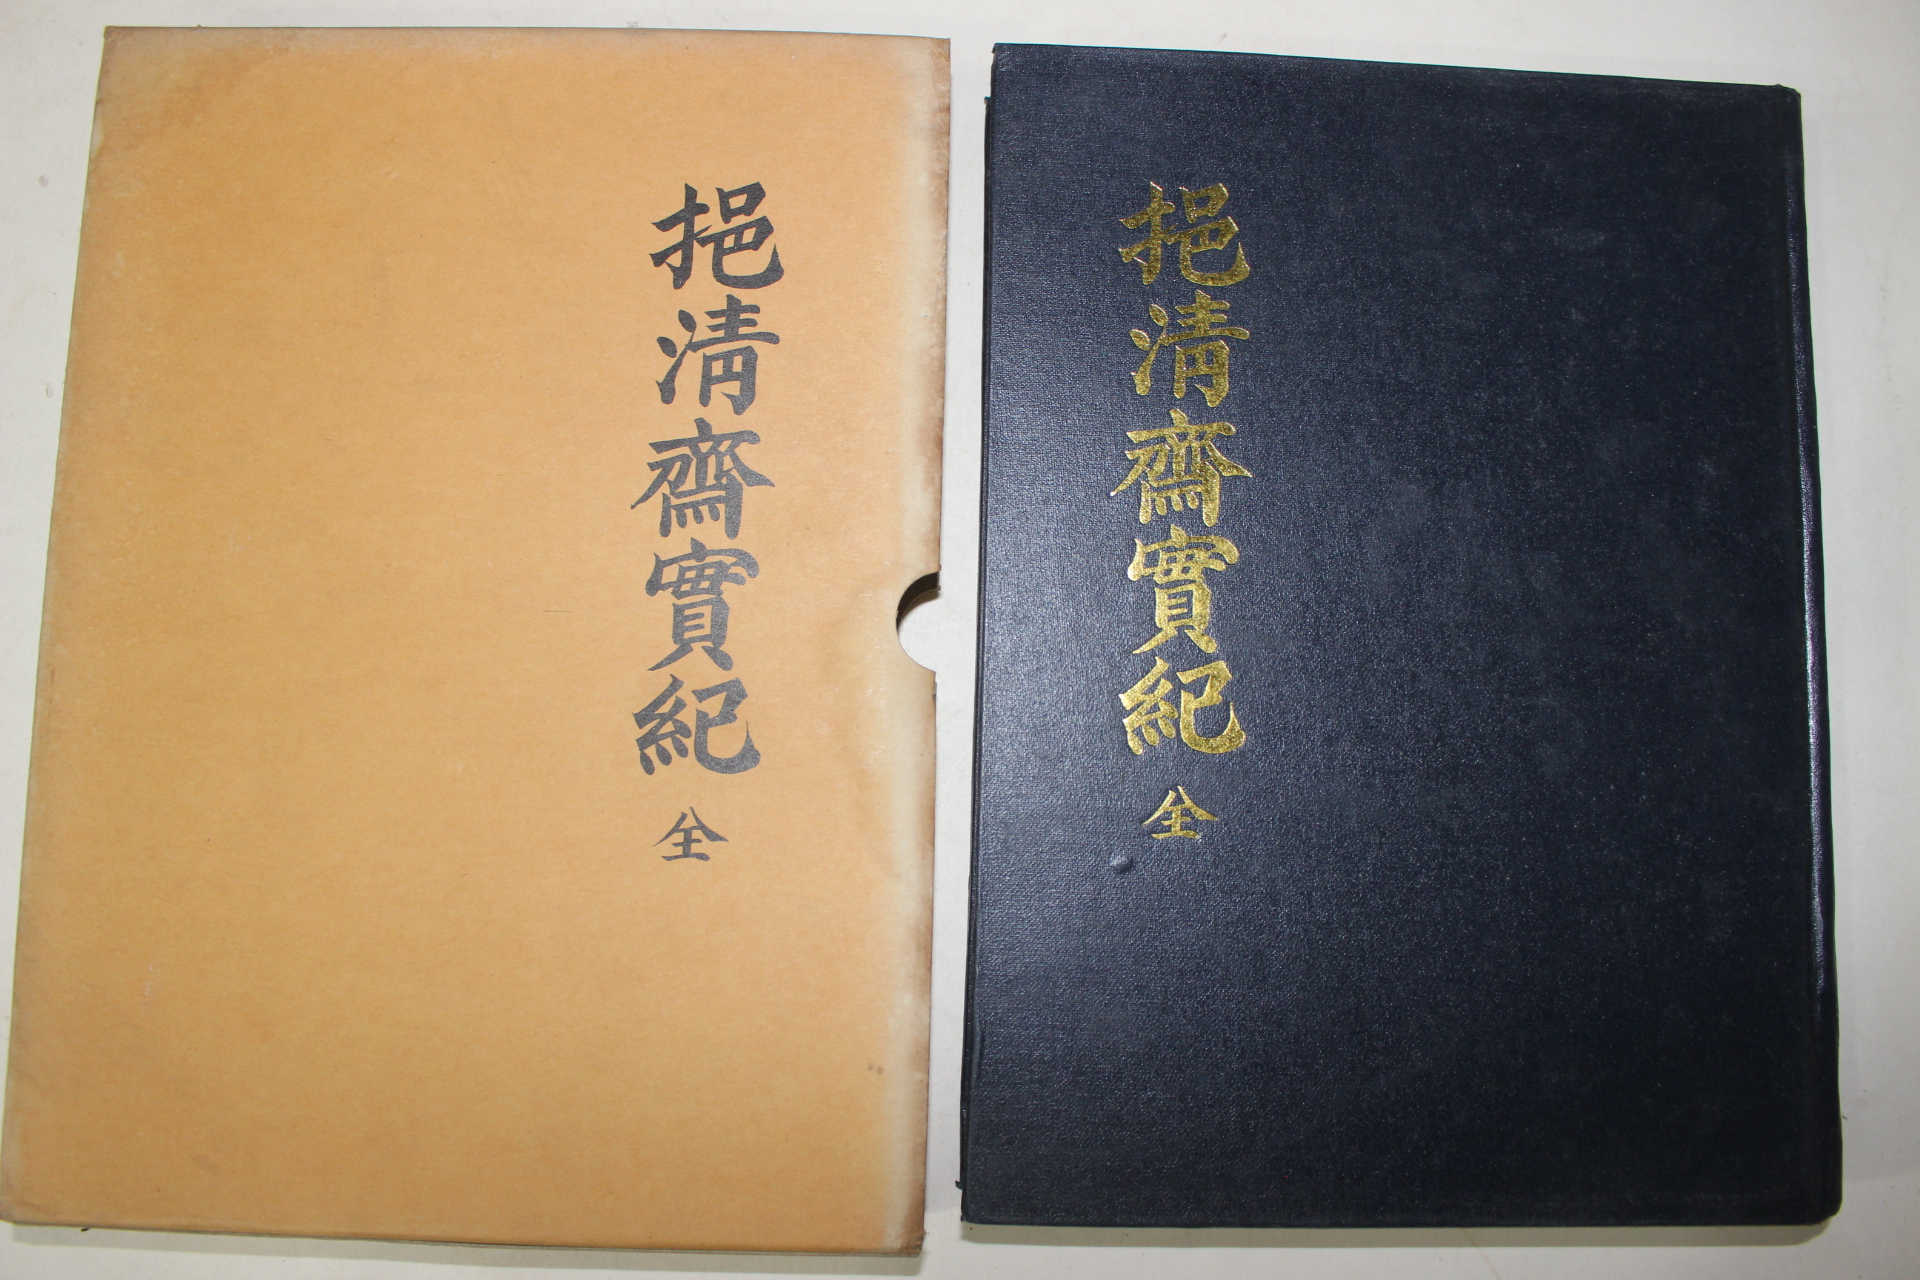 挹清齋實紀 全
挹清齋實紀 全